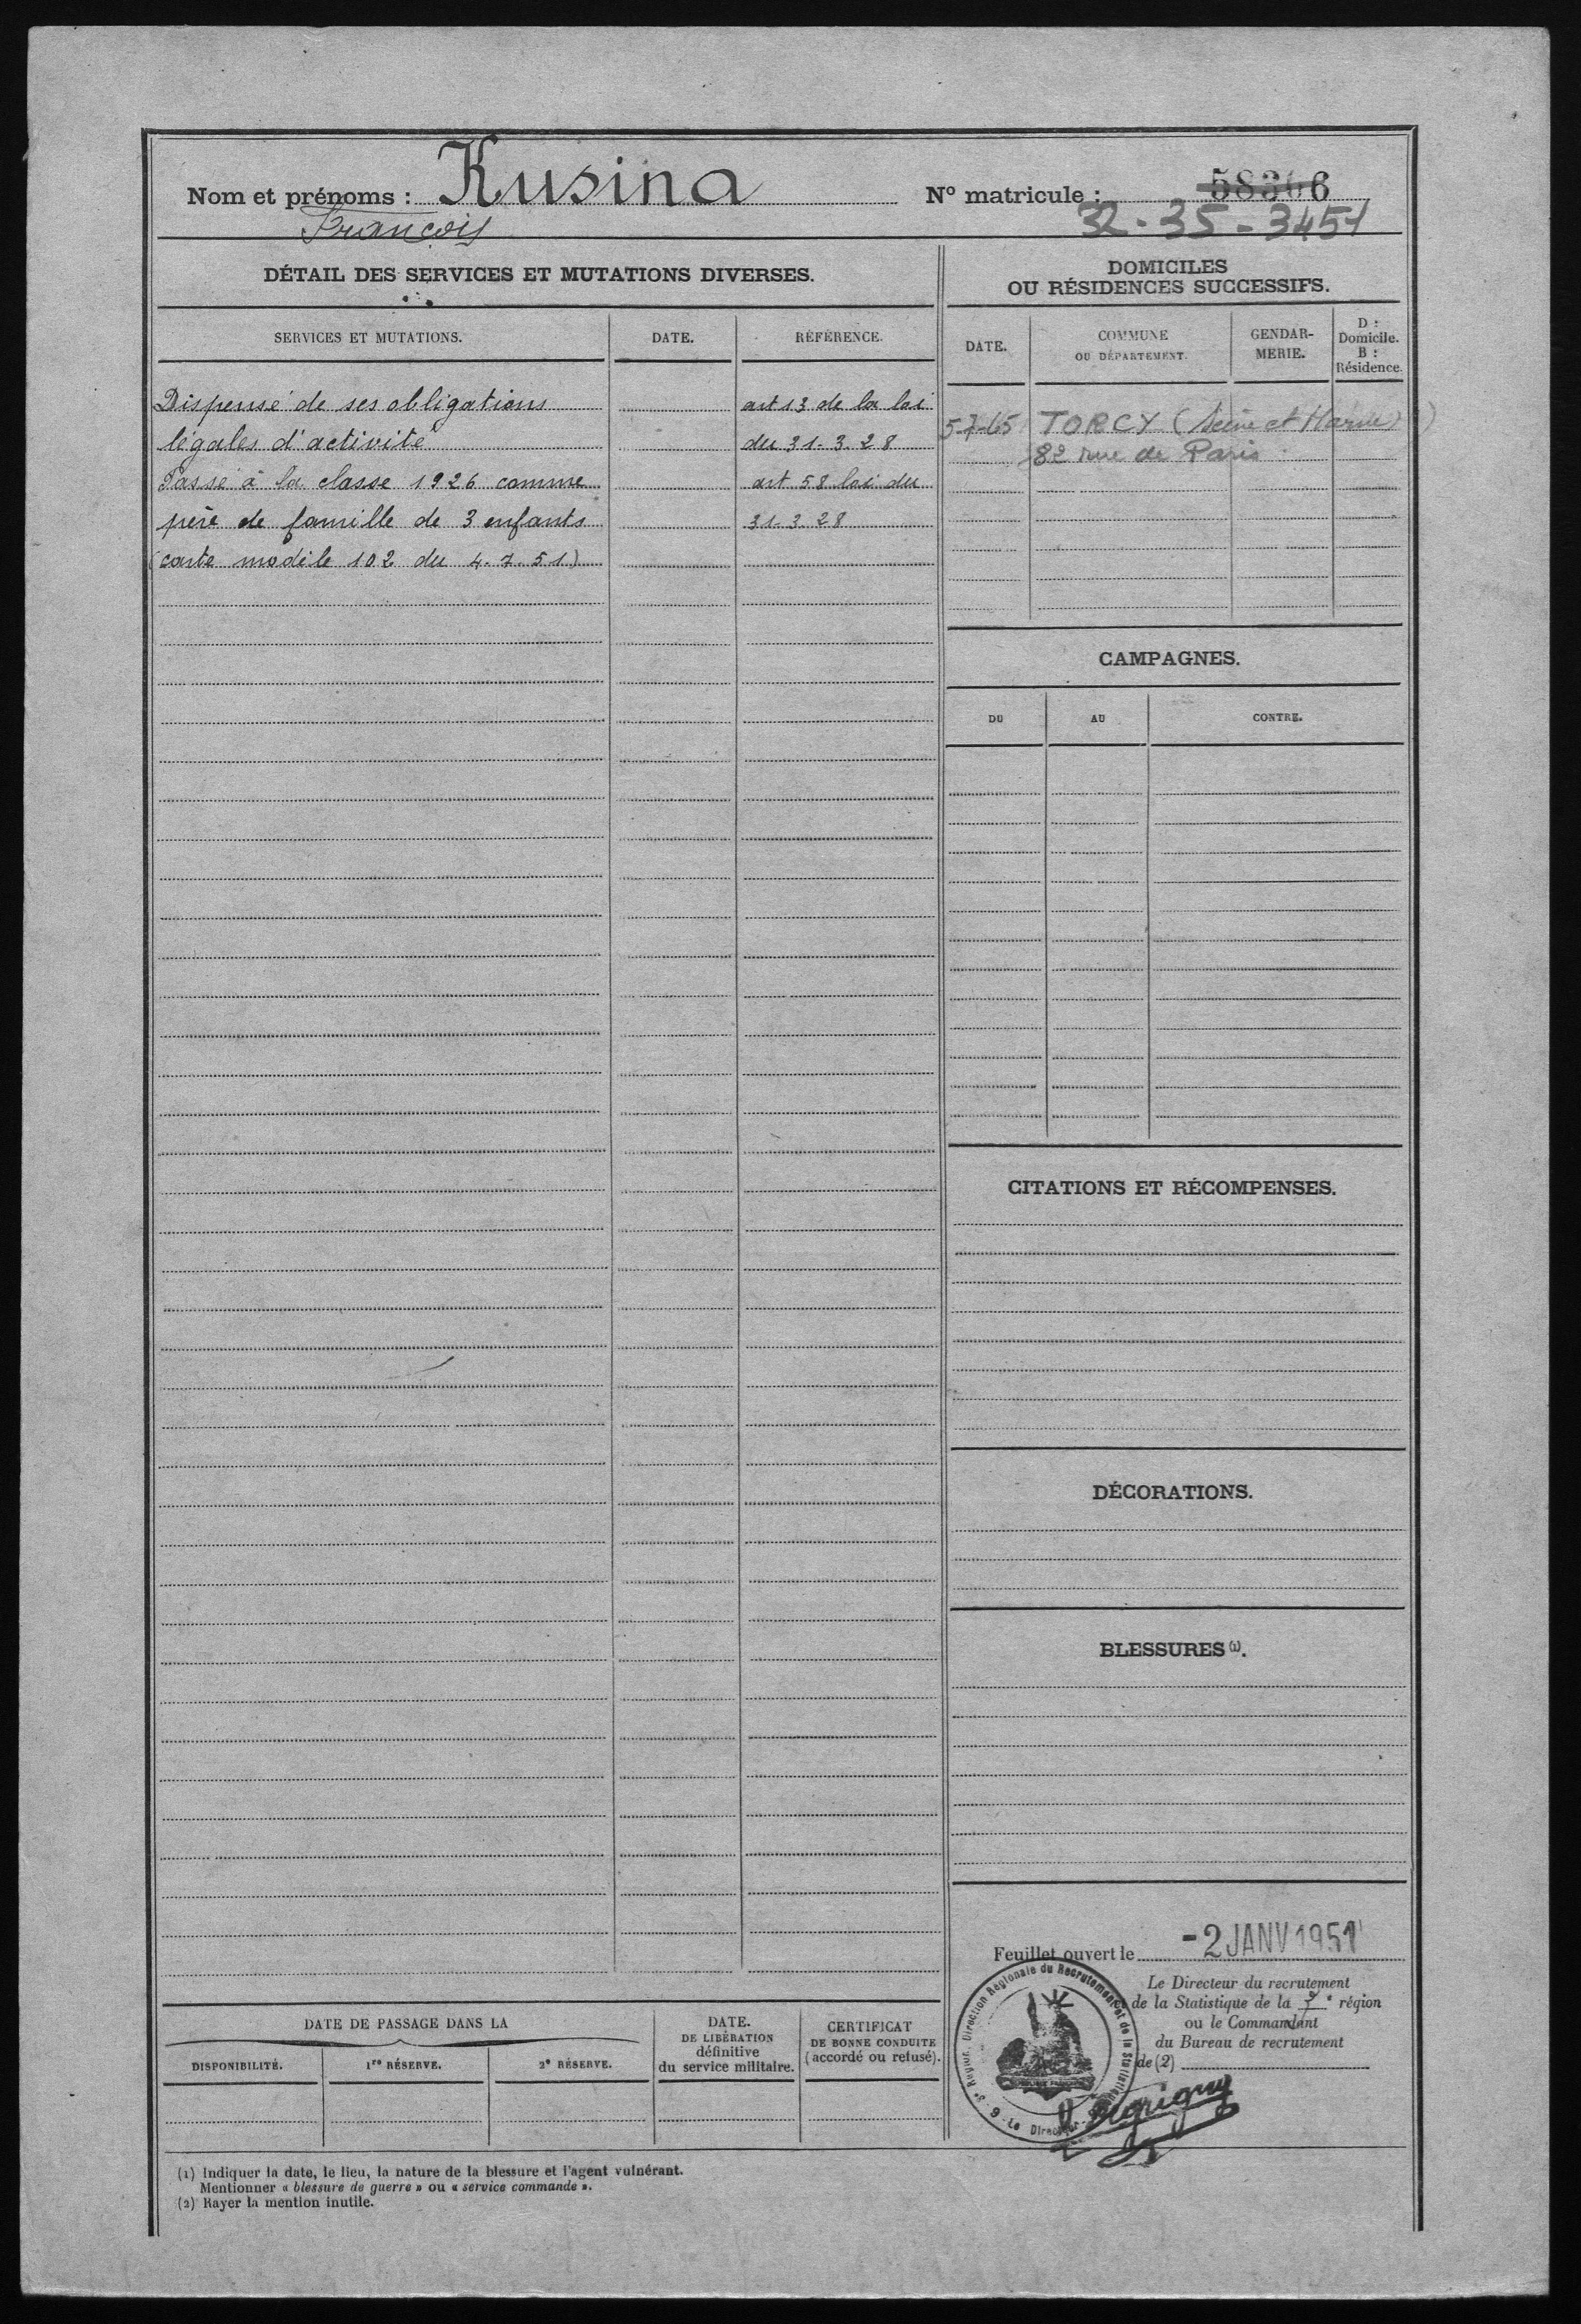 Nom et prénoms : Kusina N° matricule : 58306
François 32-35-3451
DÉTAIL DES SERVICES ET MUTATIONS DIVERSES.
SERVICES ET MUTATIONS. DATE. RÉFÉRENCE.
Dispensé de ses obligations art 13 de la loi
légales d'activité du 31-3-28
Passé à la classe 1926 comme art 58 loi du
père de famille de 3 enfants 31-3-28
(carte modèle 102 du 4.7.51)
DOMICILES
OU RÉSIDENCES SUCCESSIFS.
DATE. COMMUNE OU DÉPARTEMENT. GENDAR-MERIE. D : Domicile. B : Résidence.
5-7-65 TORCY (Seine et Marne)
82 rue de Paris
CAMPAGNES.
DU AU CONTRE.
CITATIONS ET RÉCOMPENSES.
DÉCORATIONS.
BLESSURES (1).
Feuillet ouvert le -2 JANV 1951
Le Directeur du recrutement
et de la Statistique de la région
ou le Commandant
du Bureau de recrutement
de (2)
Direction Régionale du Recrutement et de la Statistique
Le Directeur
DATE DE PASSAGE DANS LA
DISPONIBILITÉ. 1re RÉSERVE. 2e RÉSERVE.
DATE.
DE LIBÉRATION
définitive
du service militaire.
CERTIFICAT
DE BONNE CONDUITE
(accordé ou refusé).
(1) Indiquer la date, le lieu, la nature de la blessure et l'agent vulnérant.
Mentionner « blessure de guerre » ou « service commandé ».
(2) Rayer la mention inutile.